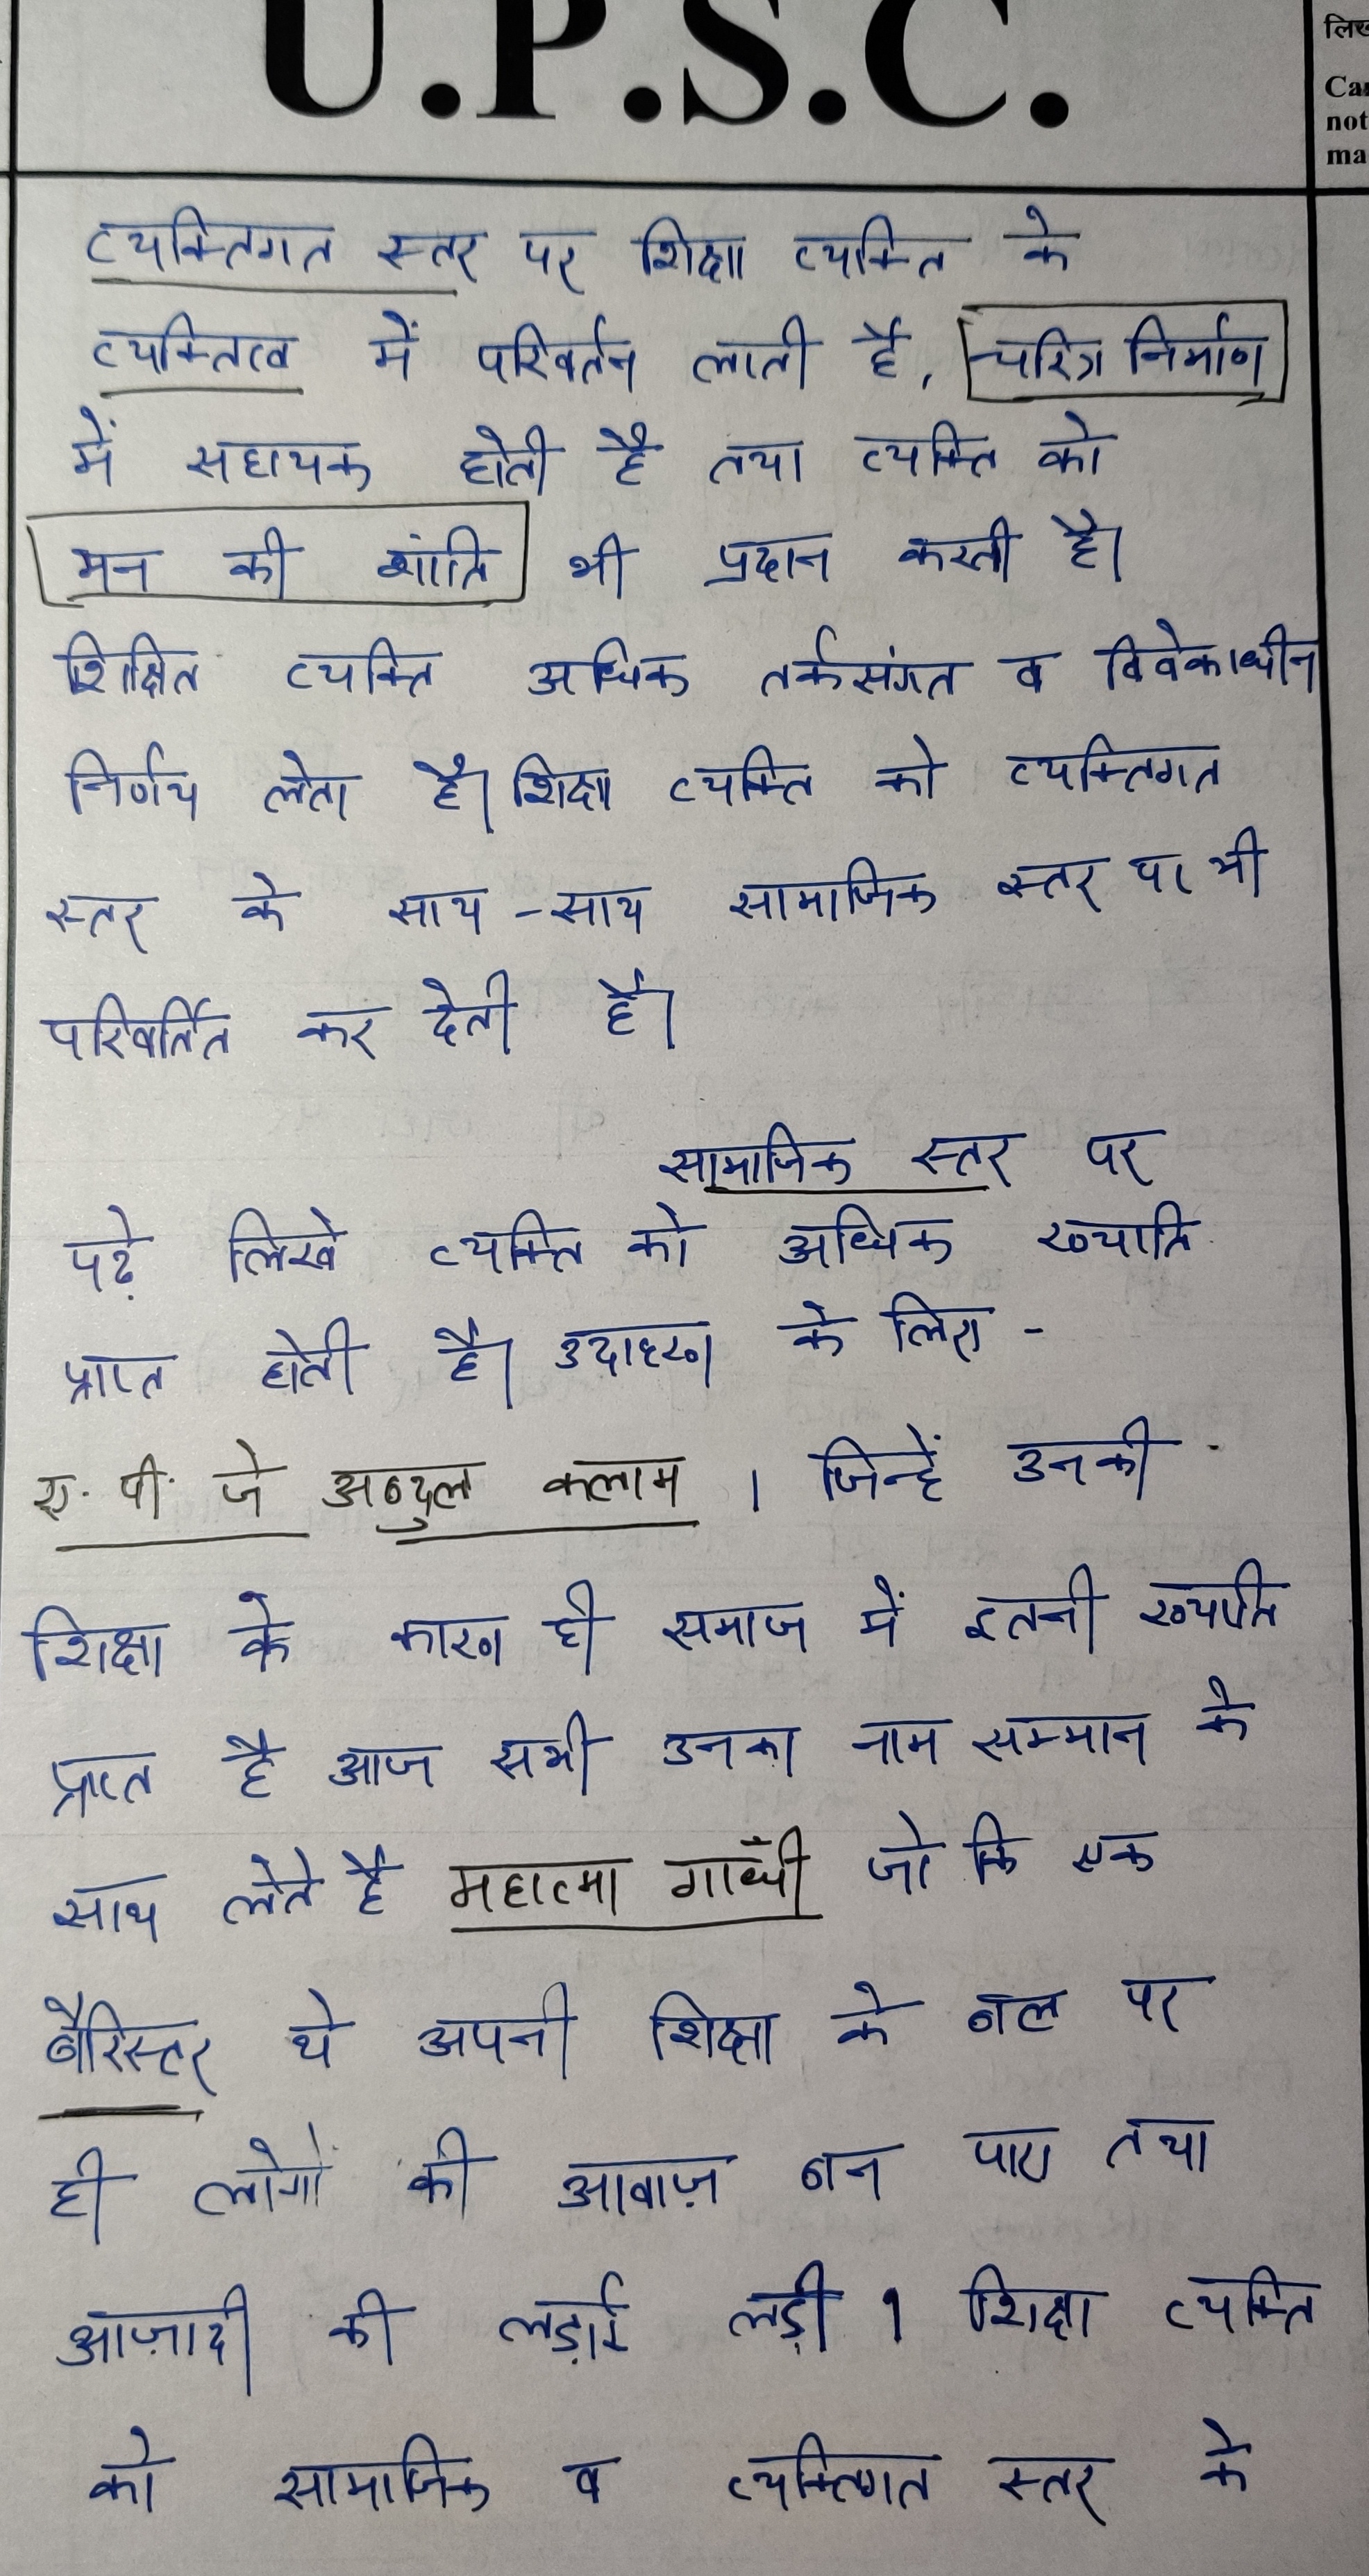 U.P.S.C.
लिख
Can
not
ma
व्यक्तिगत स्तर पर शिक्षा व्यक्ति के
व्यक्तित्व में परिवर्तन लाती है, चरित्र निर्माण
में सहायक होती है तथा व्यक्ति को
मन की शांति भी प्रदान करती है।
शिक्षित व्यक्ति अधिक तर्कसंगत व विवेकाधीन
निर्णय लेता है। शिक्षा व्यक्ति को व्यक्तिगत
स्तर के साथ -साथ सामाजिक स्तर पर भी
परिवर्तित कर देती है।
सामाजिक स्तर पर
पढ़े लिखे व्यक्ति को अधिक ख्याति
प्राप्त होती है। उदाहरण के लिए -
ए. पी. जे अब्दुल कलाम । जिन्हें उनकी
शिक्षा के कारण ही समाज में इतनी ख्याति
प्राप्त है आज सभी उनका नाम सम्मान के
साथ लेते है महात्मा गाँधी जो कि एक
बैरिस्टर थे अपनी शिक्षा के बल पर
ही लोगों की आवाज़ बन पाए तथा
आज़ादी की लड़ाई लड़ी । शिक्षा व्यक्ति
को सामाजिक व व्यक्तिगत स्तर के